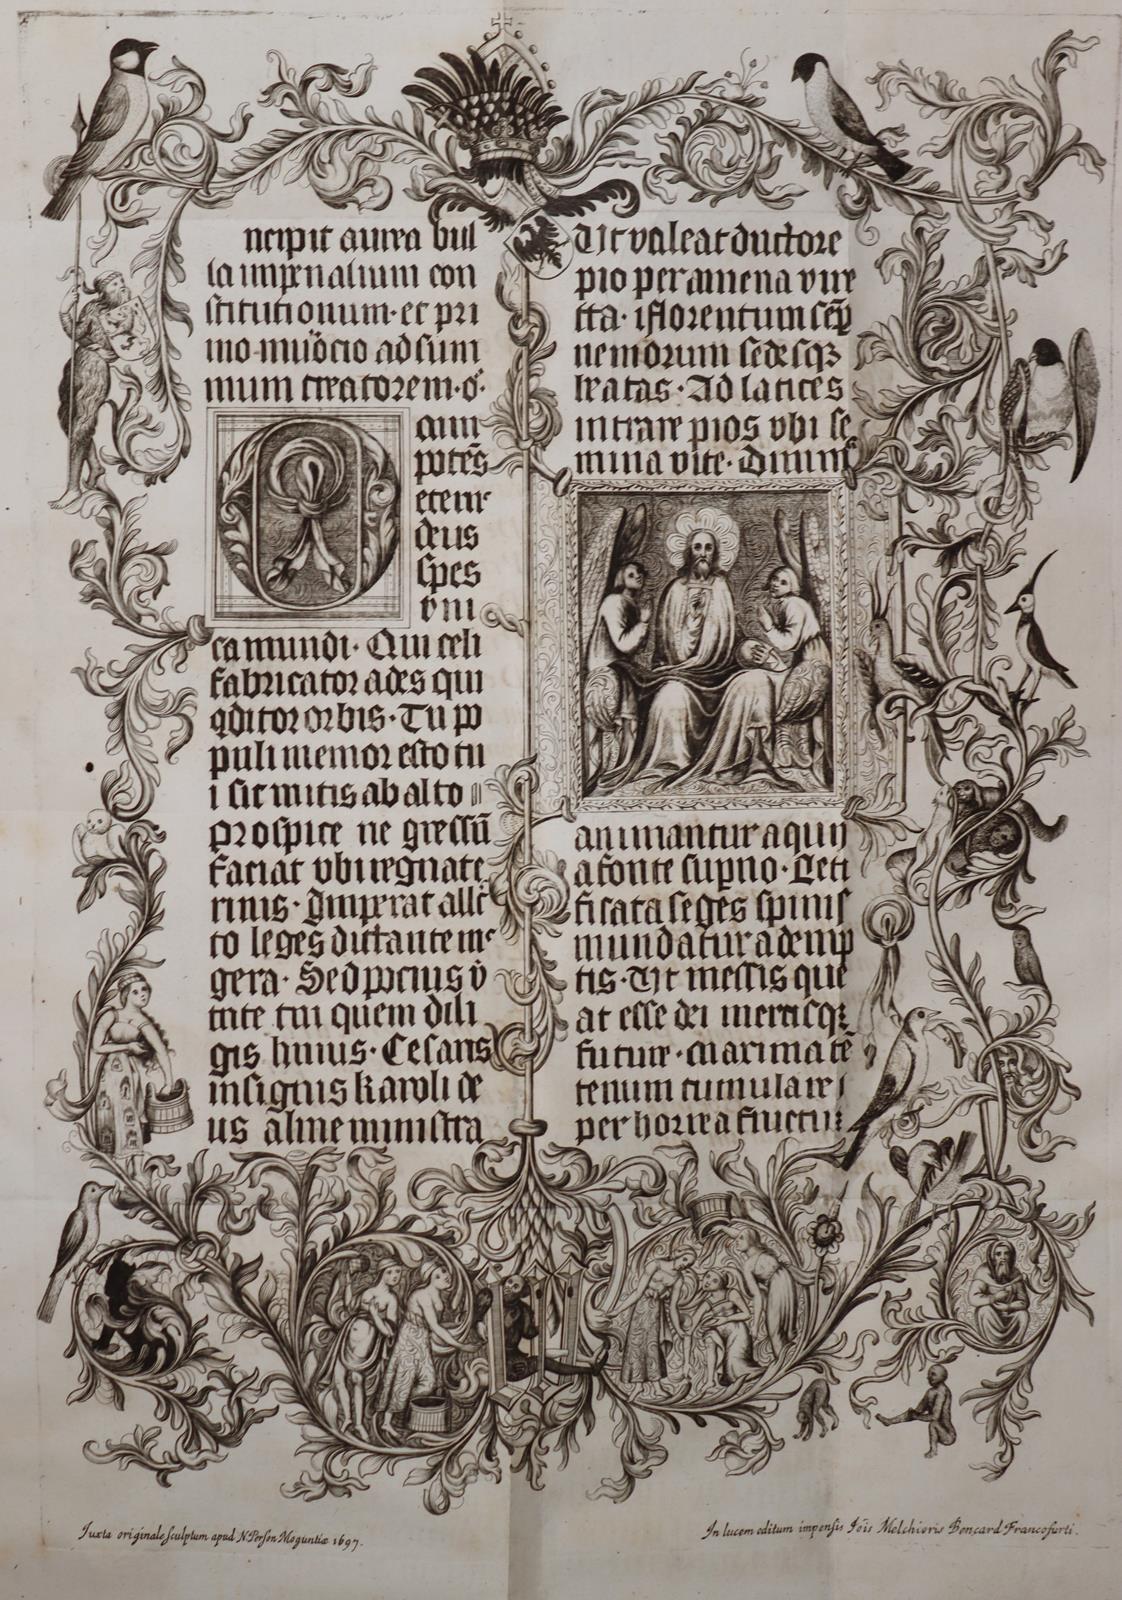 ncipit aurea bul
la imperialium con
stitutionum · et pri
mo · inuocio ad sum
mum creatorem · o ·
cum
potēs
eterne
deus
spes
vni
ca mundi · Qui celi
fabricator ades qui
qditor orbis · Tu po
puli memor esto tu
i sic mitis ab alto
prospice ne gressū
faciat vbi regnat e
rinis · Imperat allec
to leges dictante me
gera · Sed pocius v̄
tute tui quem dili
gis huius · Cesaris
insignis karoli de
us alme ministra
Ut valeat ductore
pio per amena vire
cta · iflorentum sēp
nemorum sedesqz
beatas · Ad latices
intrare pios vbi se
mina vite · Diuinis
animantur aquis
a fonte supno · Leti
ficata seges spinis
mundatur ademp
tis · Ut messis que
at esse dei mercisqz
future · maxima cē
tenum cumulare
per horrea fructum
Iuxta originale sculptum apud N. Person Moguntiæ 1697.
In lucem editum impensis Jois Melchioris Bencard Francofurti.